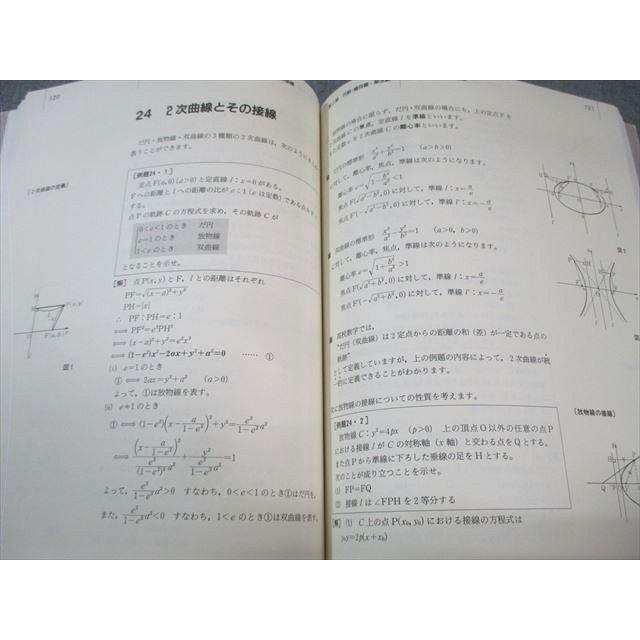 120
24 2次曲線とその接線
だ円・放物線・双曲線の3種類の2次曲線は、次のように
扱うことができます。
[2次曲線の定義]
[例題24・1]
定点F(a,0) (a>0)と定直線l:x=0がある。
Fへの距離とlへの距離の比がe:1(eは定数)である点
する。
点Pの軌跡Cの方程式を求め,その軌跡Cが
0<e<1のとき だ円
e=1のとき 放物線
1<eのとき 双曲線
となることを示せ。
[解] 点P(x,y)とF, lとの距離はそれぞれ
PF=√((x-a)²+y²)
PH=|x|
∴ PF:PH=e:1
⟺ PF²=e²PH²
⟺ (x-a)²+y²=e²x²
⟺ (1-e²)x²-2ax+y²+a²=0 …… ①
(i) e=1のとき
① ⟺ 2ax=y²+a² (a>0)
よって,①は放物線を表す。
(ii) e≠1のとき
① ⟺ (1-e²)(x-a/(1-e²))²+y²=e²/(1-e²)a²
⟺ (x-a/(1-e²))²/(e²/(1-e²)²a²)+y²/(e²/(1-e²)a²)=1
よって, e²/(1-e²)a²>0 すなわち,0<e<1のとき①はだ円を,
また, e²/(1-e²)a²<0 すなわち,1<eのとき①は双曲線を表す。
図1
121
放物線の場合に限らず,だ円・双曲線の場合にも,上の定点Fを
2次曲線Cの焦点,定直線lを準線といいます。
eを2次曲線Cの離心率といいます。
だ円の標準形 x²/a²+y²/b²=1 (a>b>0)
に対して,離心率,焦点,準線は次のようになります。
離心率 e=√(1-b²/a²)<1
焦点F(√(a²-b²),0)に対して,準線l:x=a/e
焦点F'(-√(a²-b²),0)に対して,準線l':x=-a/e
双曲線の標準形 x²/a²-y²/b²=1 (a>0, b>0)
に対して,離心率,焦点,準線は次のようになります。
離心率 e=√(1+b²/a²)>1
焦点F(√(a²+b²),0)に対して,準線l:x=a/e
焦点F'(-√(a²+b²),0)に対して,準線l':x=-a/e
高校数学では,
"だ円(双曲線)は2定点からの距離の和(差)が一定である点の
軌跡"
として定義していますが,上の例題の内容によって,2次曲線が統
一的に定義できることがわかります。
次に放物線の接線についての性質を考えます。
[放物線の接線]
[例題24・2]
放物線C:y²=4px (p>0) 上の頂点O以外の任意の点P
における接線lがCの対称軸(x軸)と交わる点をQとする。
また点Pから準線に下ろした垂線の足をHとする。
次のことが成り立つことを示せ。
(1) FP=FQ
(2) 接線lは∠FPHを2等分する
[解] (1) C上の点P(x₀,y₀)における接線の方程式は
y₀y=2p(x+x₀)